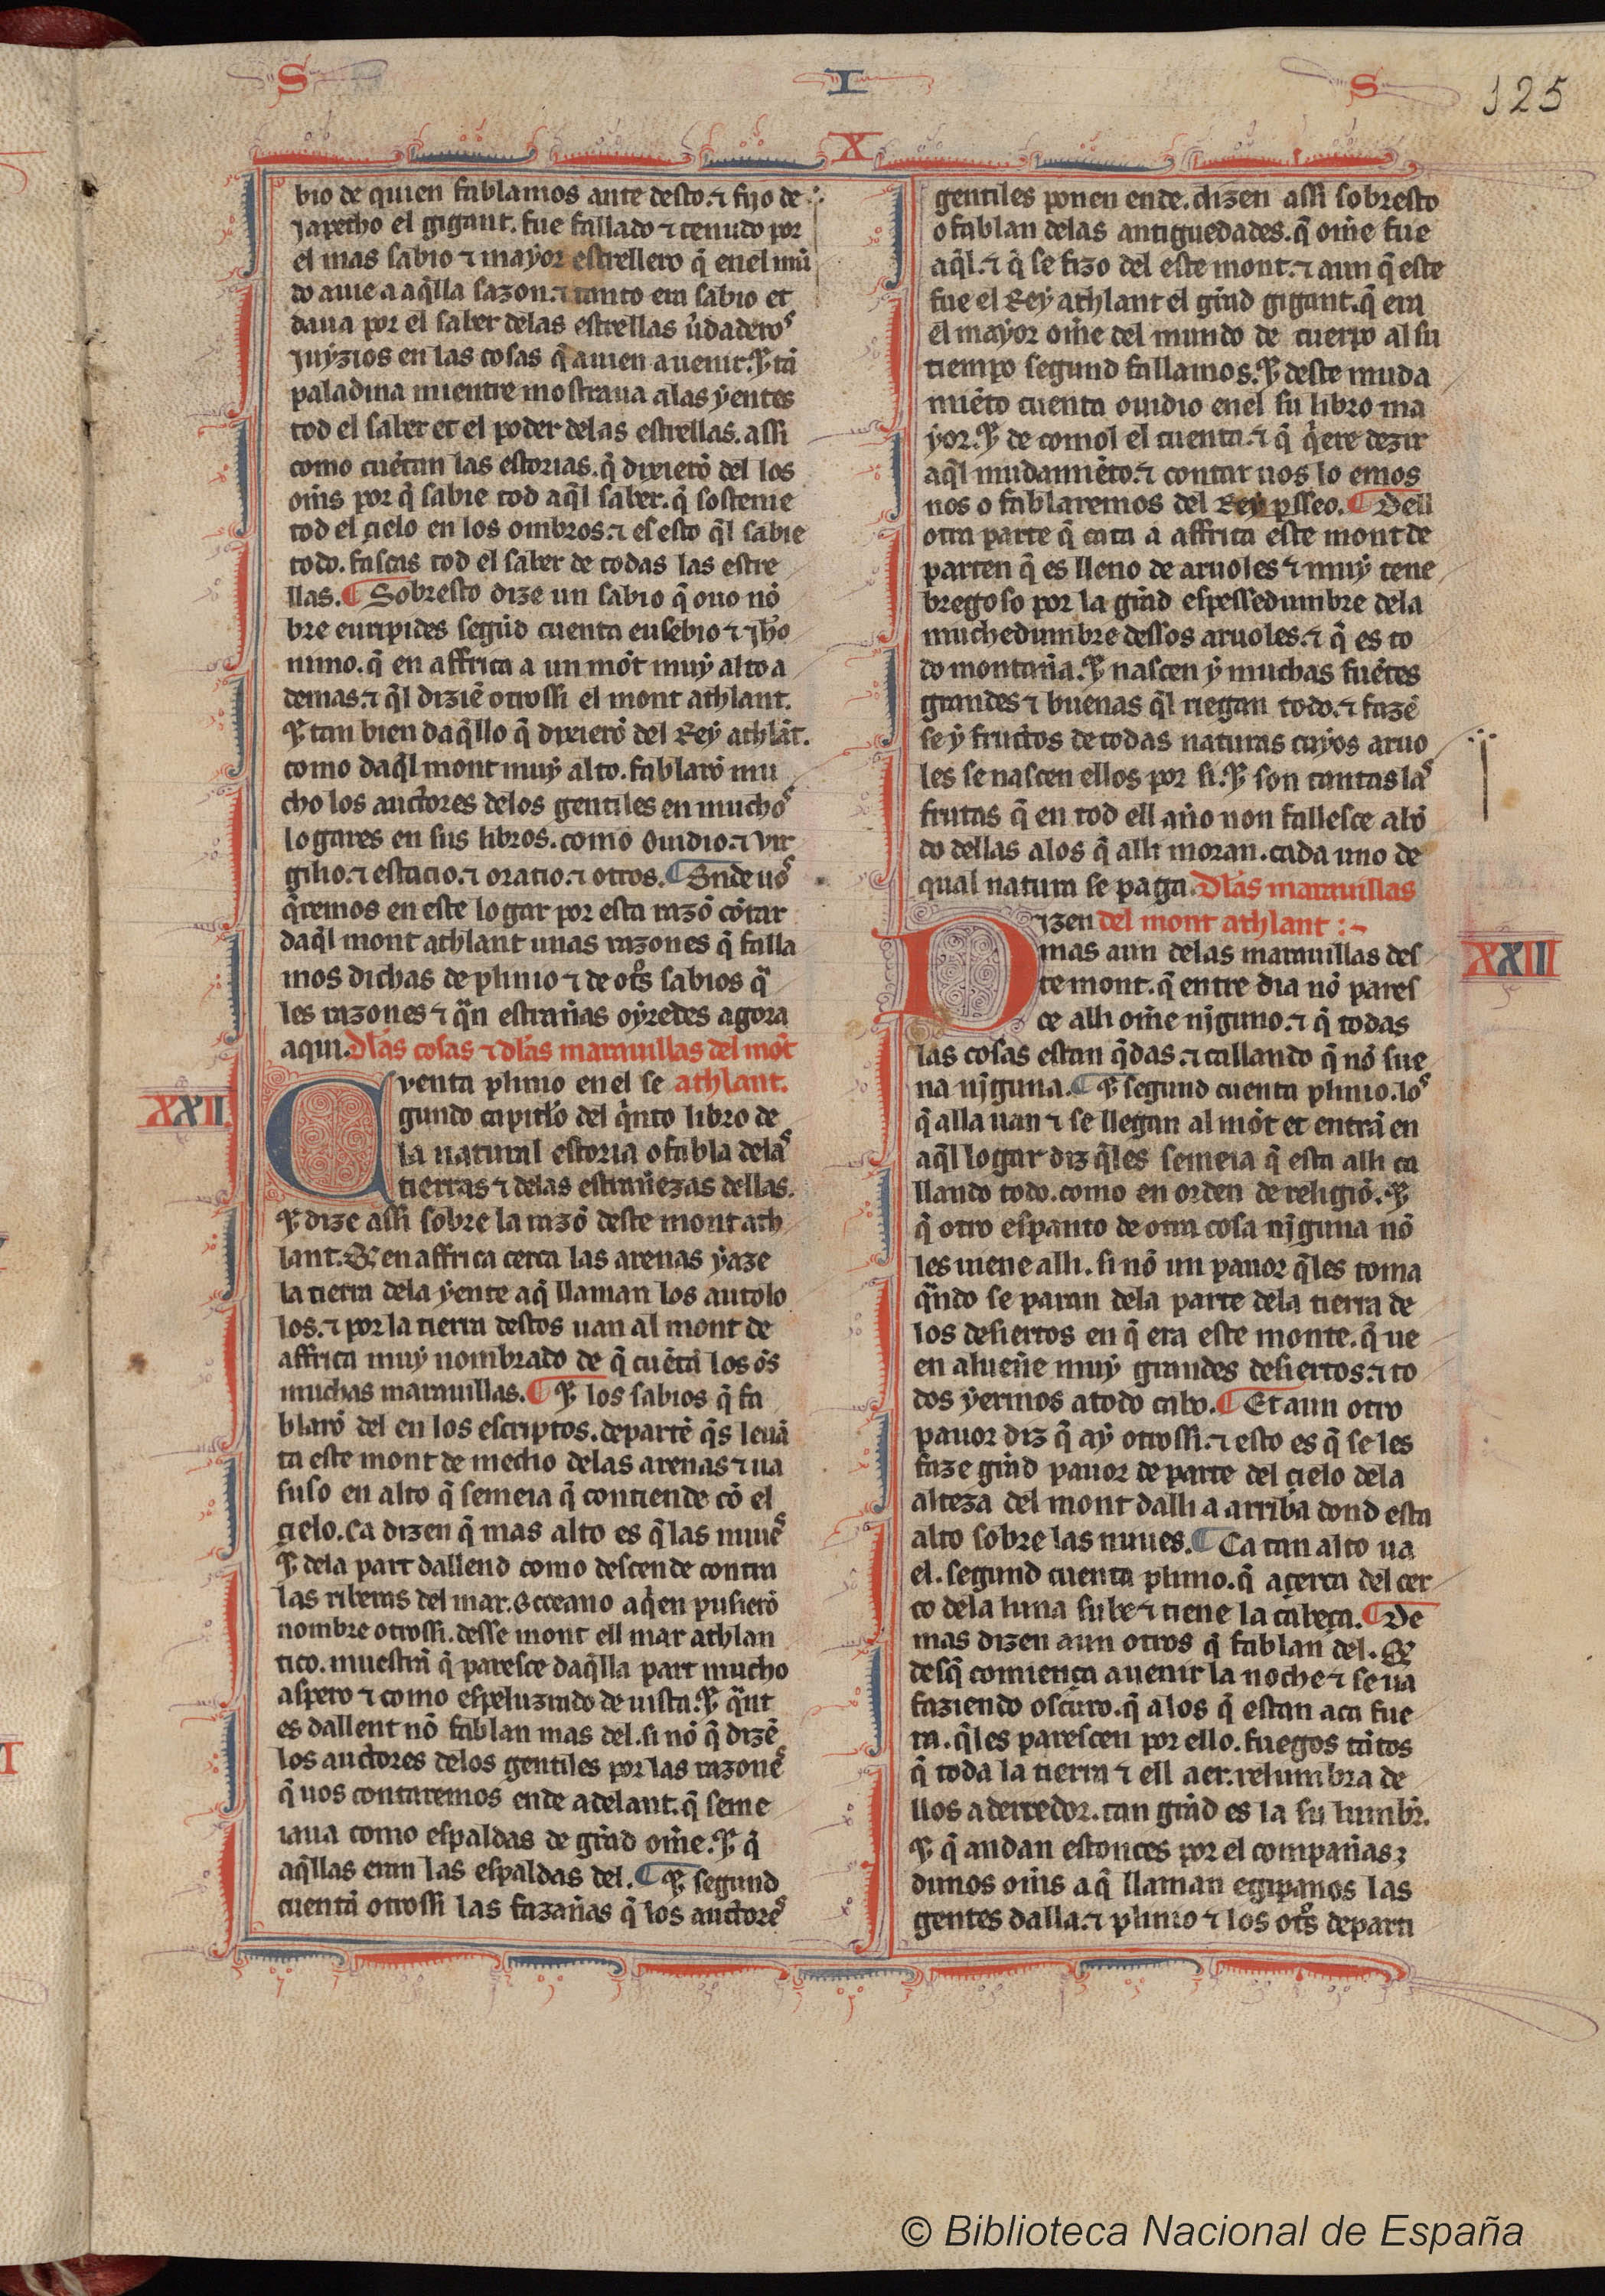 S I S
125
X
bio de quien fablamos ante desto. ⁊ fijo de
Japecho el gigant. fue fallado ⁊ tenudo por
el mas sabio ⁊ mayor estrellero q̃ enel mũ
do auie a aq̃lla sazon. ⁊ tanto era sabio et
daua por el saber delas estrellas ũdaderos
Juyzios en las cosas q̃ auien auenir. ⁊ tã
paladina mientre mostraua alas yentes
tod el saber et el poder delas estrellas. assi
como cuẽtan las estorias. q̃ dixierõ del los
om̃s por q̃ sabie tod aq̃l saber. q̃ sostenie
tod el çielo en los ombros. ⁊ es esto q̃l sabie
todo. fascas tod el saber de todas las estre
llas. ¶ Sobresto dize un sabio q̃ ouo nõ
bre euripides segũd cuenta eusebio ⁊ jho
nimo. q̃ en affrica a un mõt muy alto a
demas. ⁊ q̃l diziẽ otrossi el mont athlant.
⁊ tan bien daq̃llo q̃ dixierõ del Rey athlãt.
como daq̃l mont muy alto. fablarõ mu
cho los auctores delos gentiles en muchos
logares en sus libros. como Ouidio. ⁊ Vir
gilio. ⁊ estacio. ⁊ oratio. ⁊ otros. ¶ Onde uos
q̃remos en este logar por esta razõ cõtar
daq̃l mont athlant unas razones q̃ falla
mos dichas de plinio ⁊ de ot̃s sabios q̃
les razones ⁊ q̃n estrañas oyredes agora
aqui. Dlas cosas ⁊ dlas marauillas del mõt
athlant.
XXII
Cuenta plinio en el se
gundo capitlo del q̃nto libro de
la natural estoria o fabla delas
tierras ⁊ delas estrañezas dellas.
⁊ dize assi sobre la razõ deste mont ath
lant. Q̃ en affrica cerca las arenas yaze
la tierra dela yente aq̃ llaman los autolo
los. ⁊ por la tierra destos uan al mont de
affrica muy nombrado de q̃ cuẽtã los õs
muchas marauillas. ¶ ⁊ los sabios q̃ fa
blarõ del en los escriptos. departẽ q̃s leuã
ta este mont de medio delas arenas ⁊ ua
suso en alto q̃ semeia q̃ contiende cõ el
çielo. Ca dizen q̃ mas alto es q̃ las nuues
⁊ dela part dallend como descende contra
las riberas del mar. Occeano aq̃en pusierõ
nombre otrossi. desse mont ell mar athlan
tico. muestrã q̃ paresce daq̃lla part mucho
aspero ⁊ como espeluzrado de uista. ⁊ q̃nt
es dallent nõ fablan mas del. si nõ q̃ dizẽ
los auctores delos gentiles por las razones
q̃ uos contaremos ende adelant. q̃ seme
iaua como espaldas de grãd om̃e. ⁊ q̃
aq̃llas eran las espaldas del. ¶ ⁊ segund
cuentã otrossi las fazañas q̃ los auctores
gentiles ponen ende. dizen assi sobresto
o fablan delas antiguedades. q̃ om̃e fue
aq̃l. ⁊ q̃ se fizo del este mont. ⁊ aun q̃ este
fue el Rey athlant el grãd gigant. q̃ era
el mayor om̃e del mundo de cuerpo al su
tiempo segund fallamos. ⁊ deste muda
miẽto cuenta ouidio enel su libro ma
yor. ⁊ de comol el cuenta. ⁊ q̃ q̃ere dezir
aq̃l mudamiẽto. ⁊ contar uos lo emos
nos o fablaremos del Rey psseo. ¶ Dell
otra parte q̃ cata a affrica este mont de
parten q̃ es lleno de aruoles ⁊ muy tene
bregoso por la grãd espessedumbre dela
muchedumbre dessos aruoles. ⁊ q̃ es to
do montaña. ⁊ nascen y muchas fuẽtes
grandes ⁊ buenas q̃l riegan todo. ⁊ fazẽ
se y fructos de todas naturas cuyos aruo
les se nascen ellos por si. ⁊ son tantas las
frutas q̃ en tod ell año non fallesce abõ
do dellas alos q̃ alli moran. cada uno de
qual natura se paga. Dlas marauillas
del mont athlant :~
XXIII
Dizen
mas aun delas marauillas des
te mont. q̃ entre dia nõ pares
ce alli om̃e nĩguno. ⁊ q̃ todas
las cosas estan q̃das. ⁊ callando q̃ nõ sue
na nĩguna. ¶ ⁊ segund cuenta plinio. los
q̃ alla uan ⁊ se llegan al mõt et entrã en
aq̃l logar diz q̃les semeia q̃ esta alli ca
llando todo. como en orden de religiõ. ⁊
q̃ otro espanto de otra cosa nĩguna nõ
les uiene alli. si nõ un pauor q̃les toma
q̃ndo se paran dela parte dela tierra de
los desiertos en q̃ era este monte. q̃ ue
en alueñe muy grandes desiertos. ⁊ to
dos yermos atodo cabo. ¶ Et aun otro
pauor diz q̃ ay otrossi. ⁊ esto es q̃ se les
faze grãd pauor de parte del çielo dela
alteza del mont dalli a arriba dond esta
alto sobre las nuues. ¶ Ca tan alto ua
el. segund cuenta plinio. q̃ açerca del cer
co dela luna sube ⁊ tiene la cabeça. ¶ De
mas dizen aun otros q̃ fablan del. Q̃
desq̃ comiença auenir la noche ⁊ se ua
faziendo oscuro. q̃ alos q̃ estan aca fue
ra. q̃les parescen por ello. fuegos tãtos
q̃ toda la tierra ⁊ ell aer. relumbra de
llos aderredor. tan grãd es la su lumbr̃.
⁊ q̃ andan estonces por el compañas
dunos om̃s aq̃ llaman egipanos las
gentes dalla. ⁊ plinio ⁊ los ot̃s departi
© Biblioteca Nacional de España